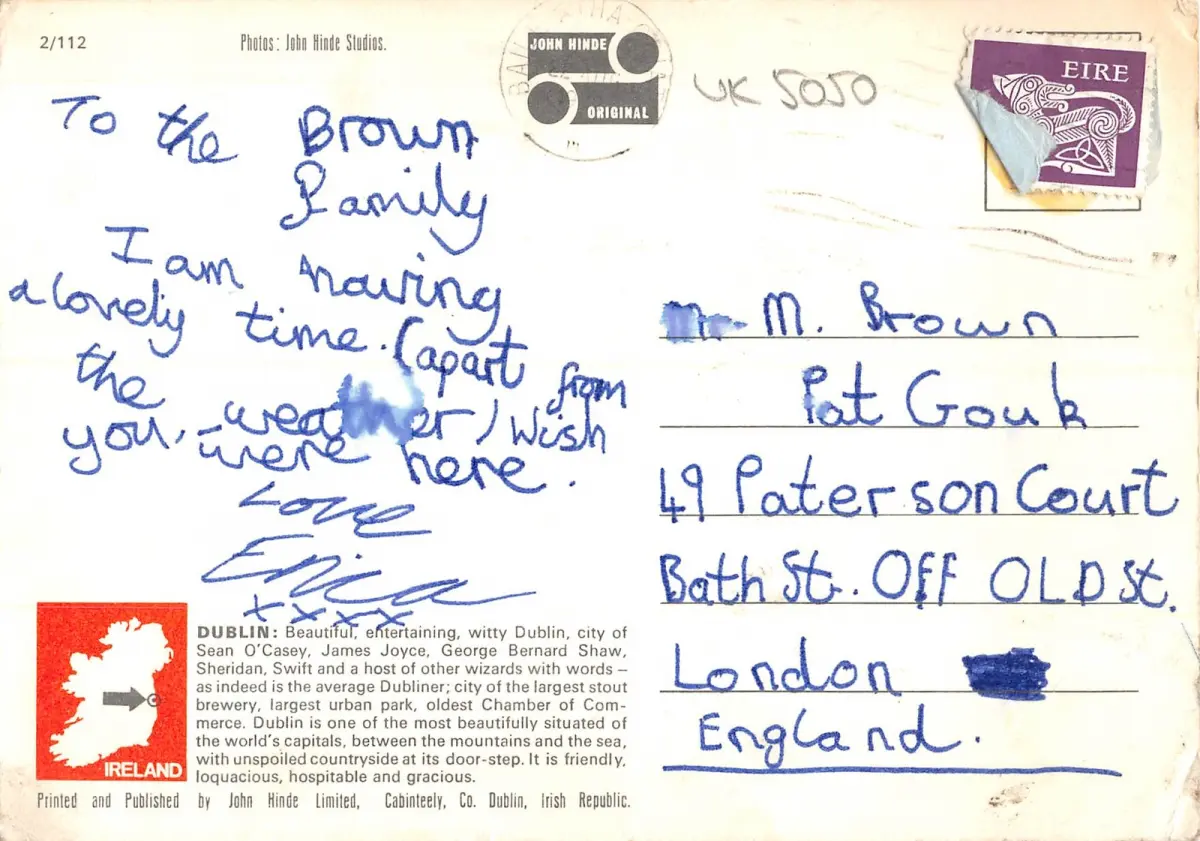 2/112
Photos: John Hinde Studios.
JOHN HINDE
ORIGINAL
UK 5050
EIRE
To the Brown
Family
I am having
a lovely time. (apart from
the weather) Wish
you, were here.
Love
Erica
xxxx
M. Brown
Pat Gouk
49 Paterson Court
Bath St. Off OLD St.
London
England.
DUBLIN: Beautiful, entertaining, witty Dublin, city of
Sean O'Casey, James Joyce, George Bernard Shaw,
Sheridan, Swift and a host of other wizards with words –
as indeed is the average Dubliner; city of the largest stout
brewery, largest urban park, oldest Chamber of Com-
merce. Dublin is one of the most beautifully situated of
the world's capitals, between the mountains and the sea,
with unspoiled countryside at its door-step. It is friendly,
loquacious, hospitable and gracious.
IRELAND
Printed and Published by John Hinde Limited, Cabinteely, Co. Dublin, Irish Republic.